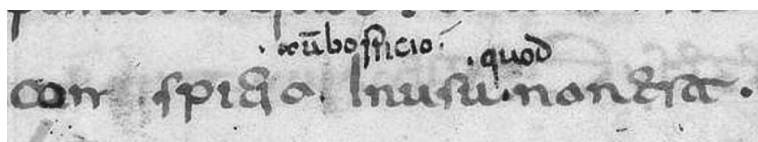 · a ūbo spicio · · quod
con spicio. In usu · non erat ·